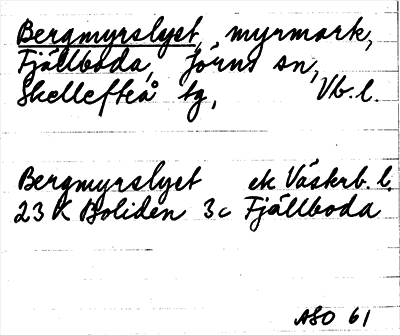 Bergmyrslyet, myrmark,
Fjällboda, Jörns sn,
Skellefteå tg, Vb. l.
Bergmyrslyet ek Västerb. l.
23 K Boliden 3c Fjällboda
ASO 61